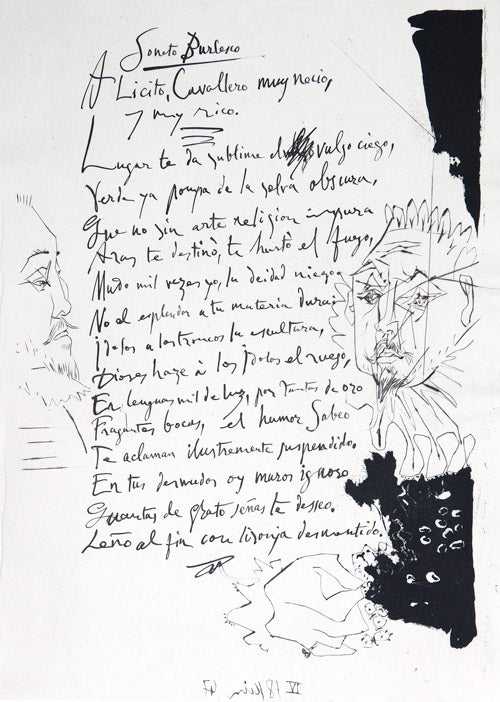 Soneto Burlesco
A Licito, Cavallero muy necio,
y muy rico.
Lugar te da sublime el vulgo ciego,
Verde ya pompa de la selva obscura,
Que no sin arte religion impura
Aras te destinò, te hurtò el fuego,
Mudo mil vezes yo, la deidad niego
No el esplendor a tu materia dura:
Idolos a los troncos la escultura,
Dioses haze à los Idolos el ruego,
En lenguas mil de luz, por tantas de oro
Fragantes bocas, el humor Sabeo
Te aclaman ilustremente suspendido,
En tus desnudos oy muros ignoro
Quantas de grato señas te deseo.
Leño al fin con lisonja desmentido.